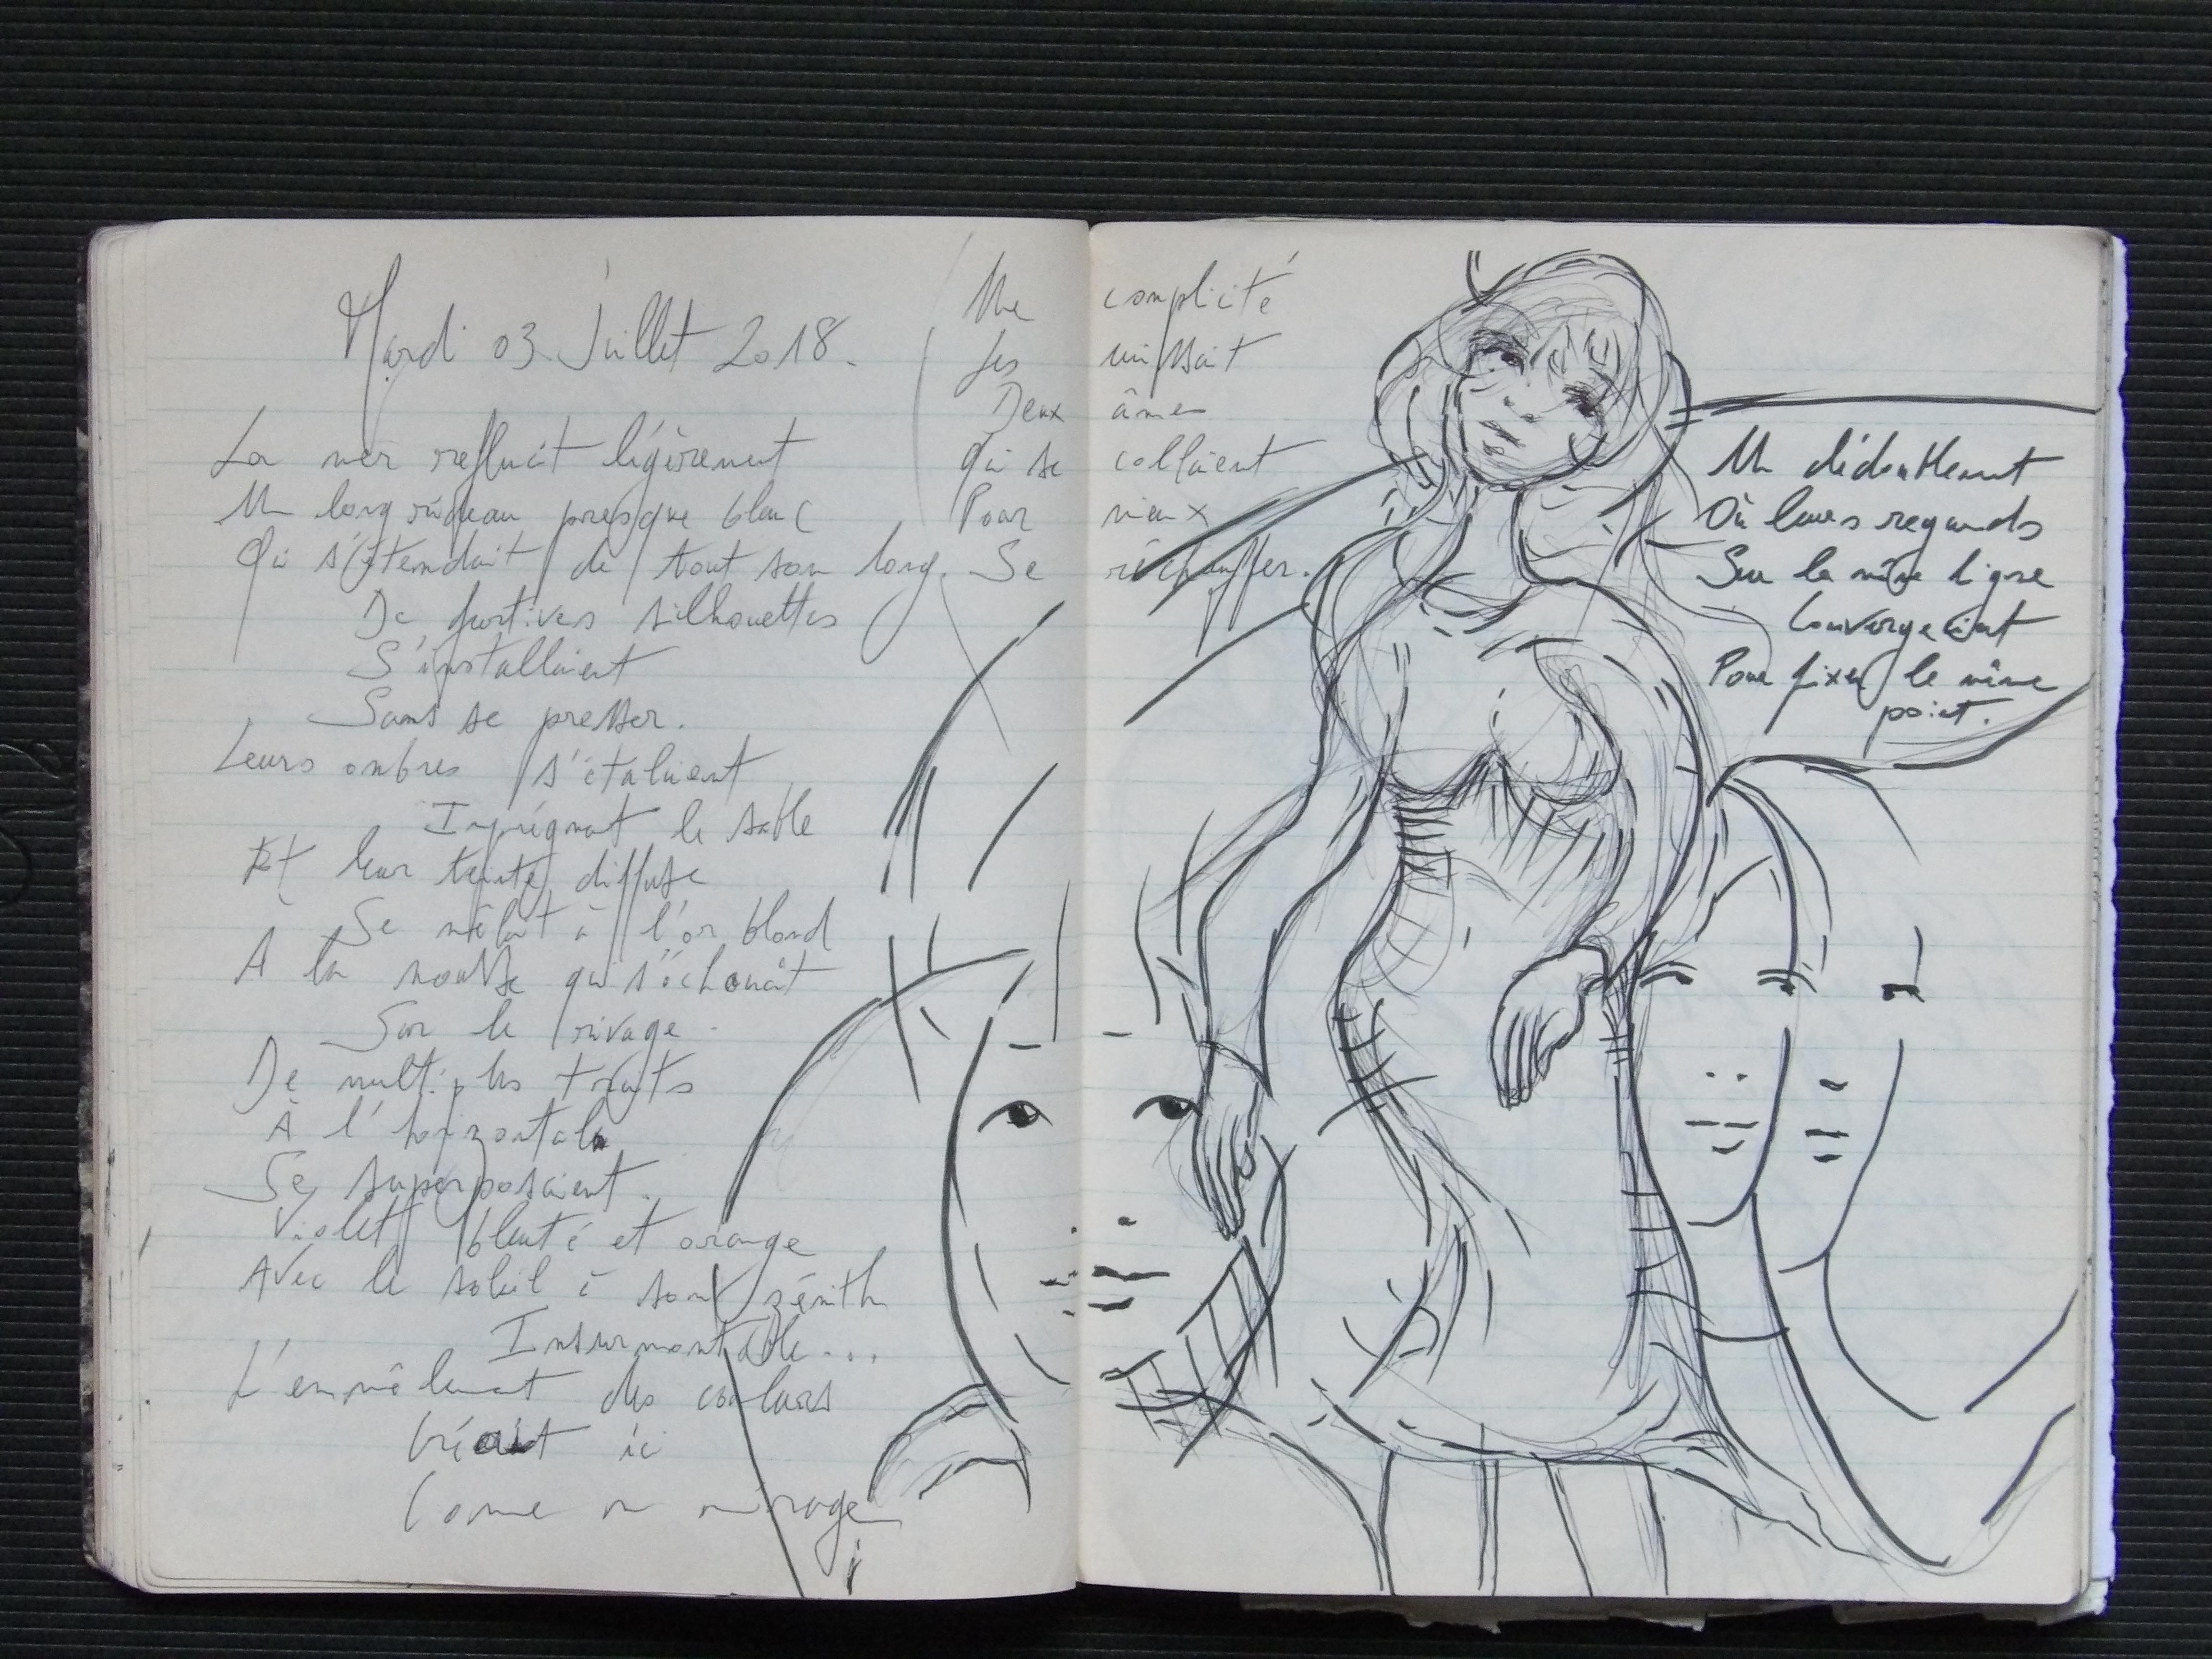 Mardi 03 Juillet 2018.
La mer refluait légèrement
Un long rideau presque blanc
Qui s'étendait de tout son long.
De furtives silhouettes
S'installaient
Sans se presser.
Leurs ombres s'étalaient
Imprégnant le sable
Et leur teinte diffuse
Se mêlait à l'or blond
À la mousse qui s'échouait
Sur le rivage.
De multiples traits
À l'horizontale
Se superposaient.
Violet bleuté et orange
Avec le soleil à son zénith
Insurmontable...
L'emmêlement des couleurs
Créait ici
Comme un mirage
Une complicité
Les unissait
Deux âmes
Qui se collaient
Pour mieux
Se réchauffer.
Un dédoublement
Où leurs regards
Sur la même ligne
Convergeaient
Pour fixer le même
point.